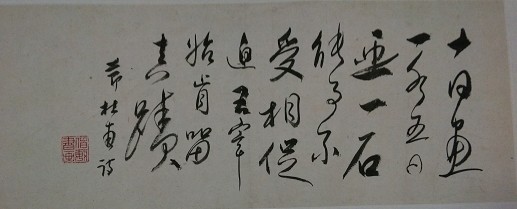 十日畫
一水五日
畫一石
能事不
受相促
迫王宰
始肯留
真蹟
節杜甫詩